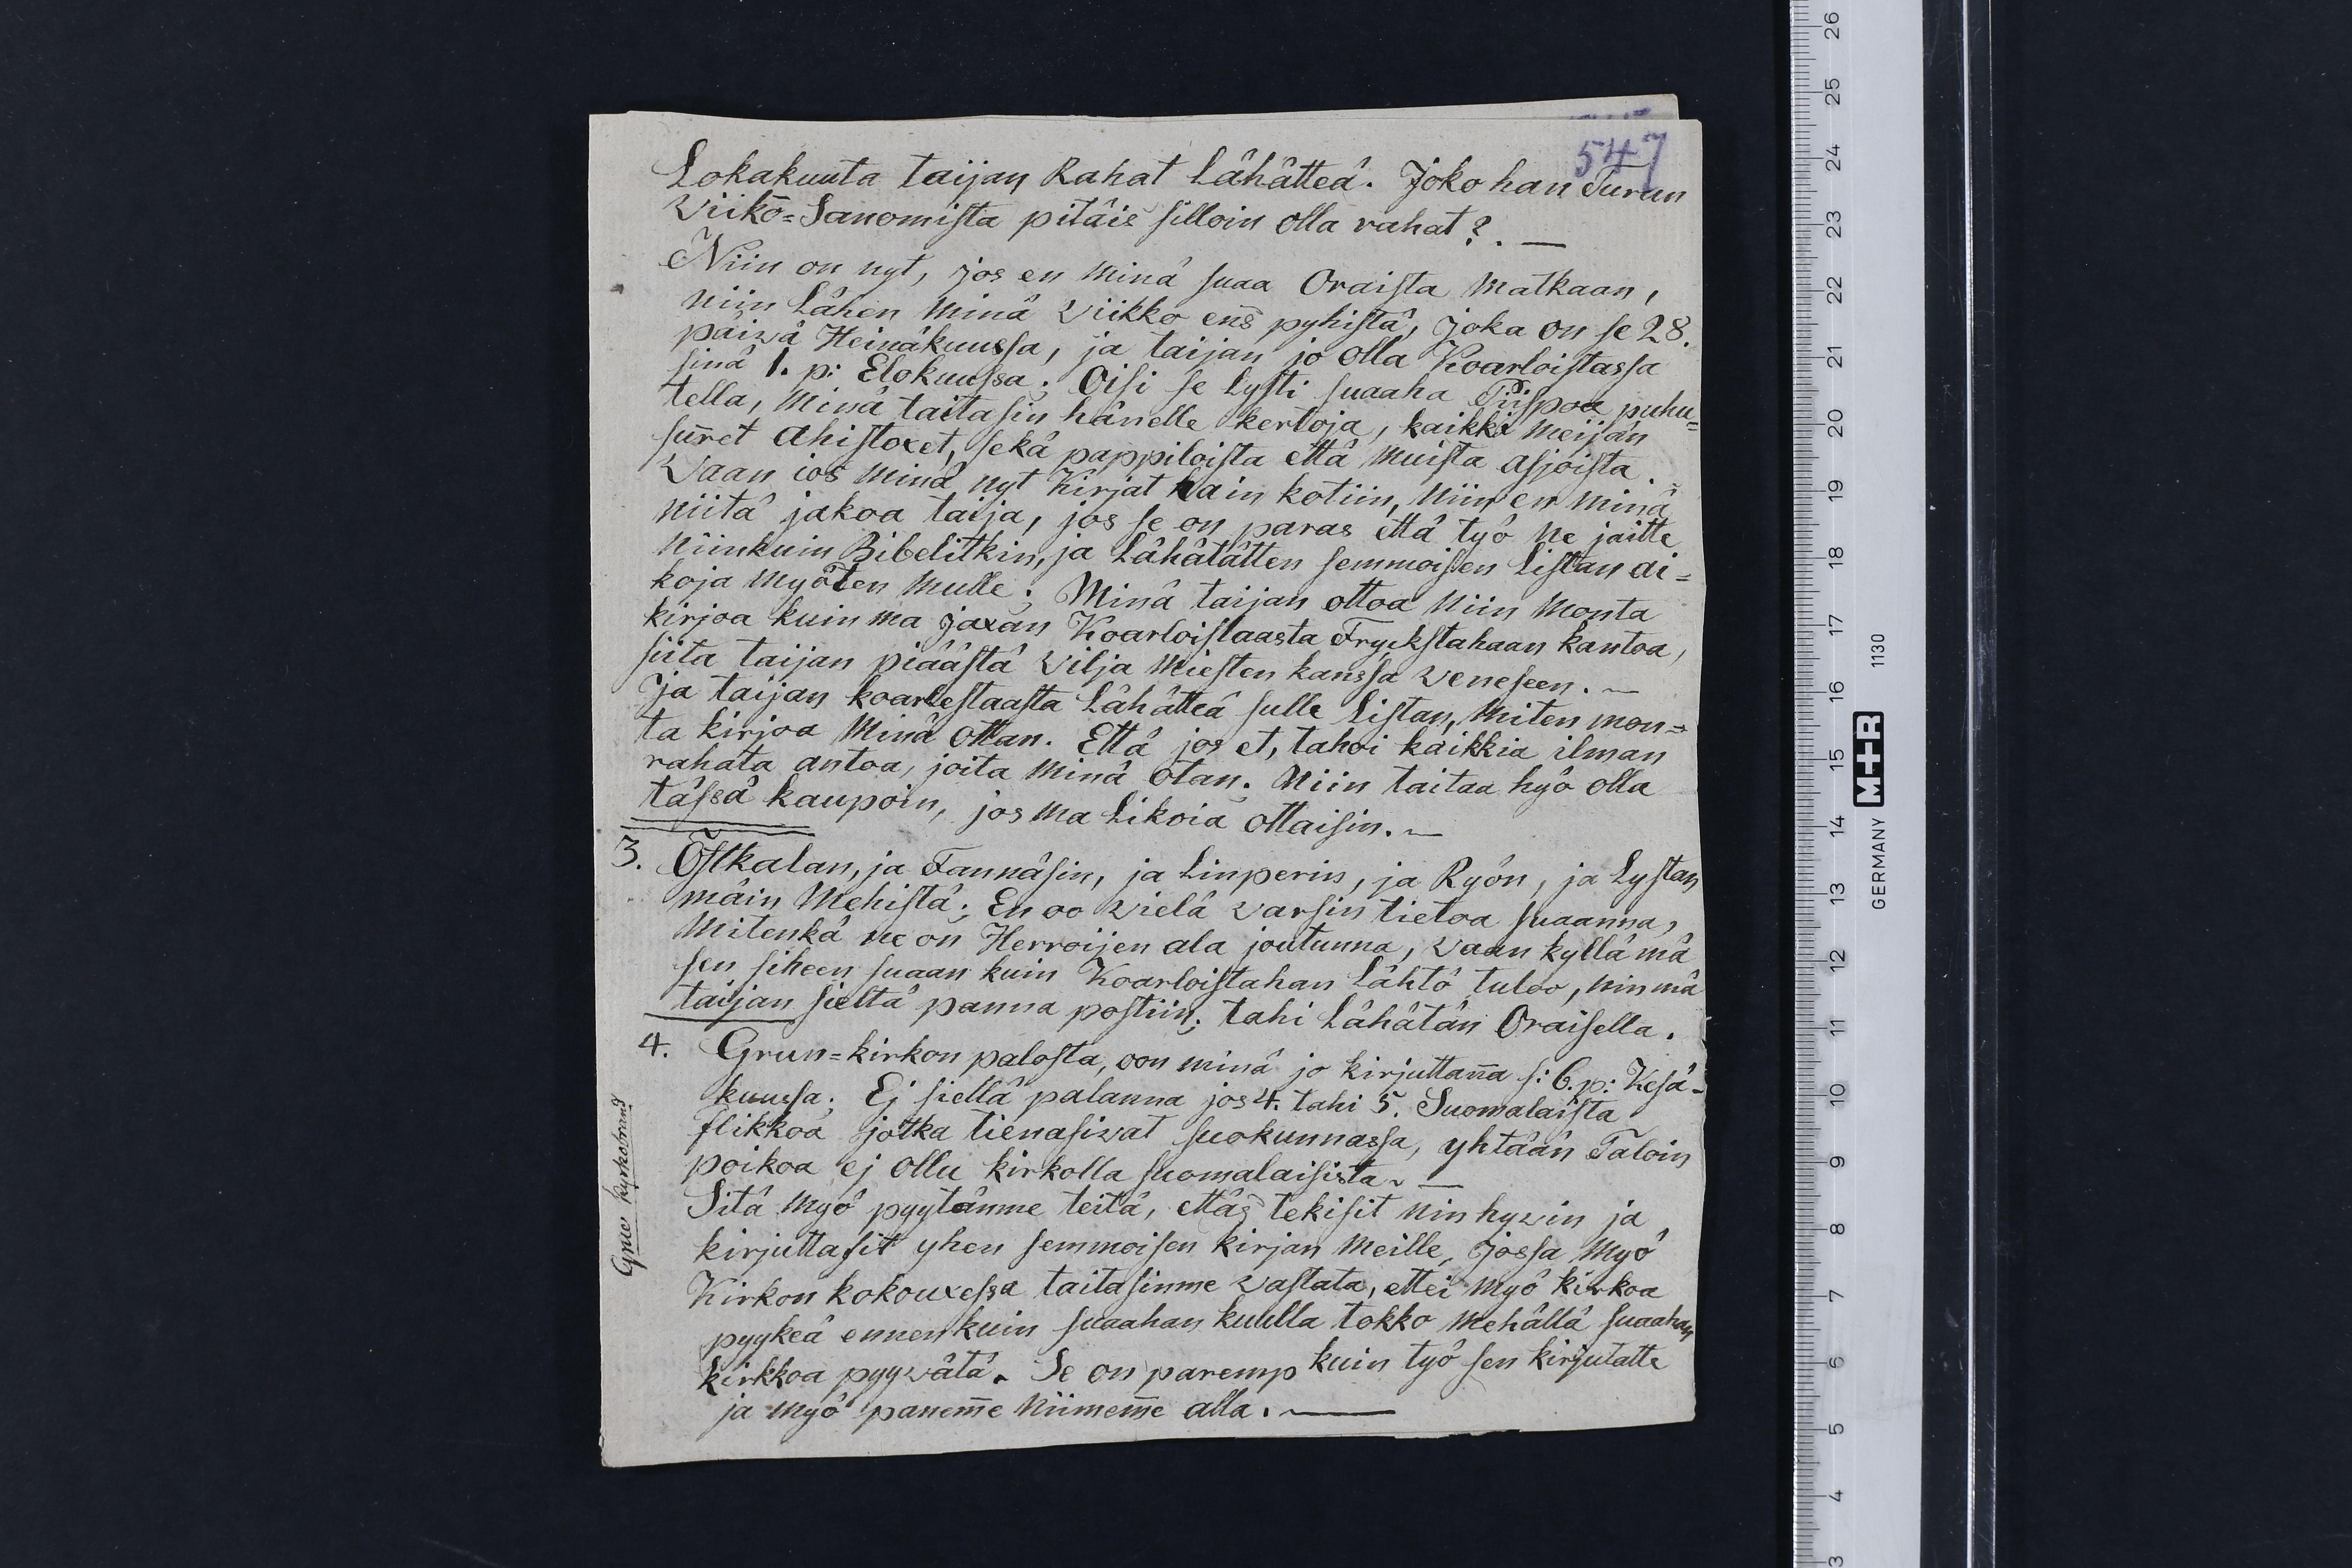 547
Lokakuuta taijan Rahat Lähätteä. Joko han Turun
Viiko=Sanomista pitäis silloin olla rahat?. —
Niin on nyt, jos en minä suaa Oraista matkaan,
niin Lähen minä Viikko ens pyhistä, joka on se 28.
päivä Heinäkuussa, ja taijan jo olla Koarloistassa
sinä 1. p: Elokuussa; Oisi se Lysti suaaha Piispoa puhu=
tella, minä taitasin hänelle kertoja, kaikki meijän
suret Ahistoxet, sekä pappiloista että muista asjoista.
Vaan ios minä nyt Kirjat hain kotiin, niin en minä
niitä jakoa taija, jos se on paras että työ ne jaitte
niinkuin Bibelitkin, ja Lähätätten semmoisen Listan ai=
koja myöten mulle; Minä taijan ottoa niin monta
kirjoa kuin ma jaxan Koarloistaasta Fryckstahaan kantoa,
siita taijan piäästä Vilja miesten kanssa Veneseen. —
Ja taijan koarlestaasta Lähätteä sulle Listan, miten mon=
ta kirjoa minä ottan. Että jos et, tahoi kaikkia ilman
rahata antoa, joita minä otan. Niin taitaa hyö olla
tässä kaupoin, jos ma Likoia ottaisin. —
3. Östkalan, ja Fannäsin, ja Linperin, ja Ryön, ja Lystan
mäin Mehistä; En oo vielä varsin tietoa suaanna,
Mitenkä ne on Herroijen ala joutunna, vaan kyllä mä
sen siheen suaan kuin Koarloistahan Lähtö tuloo, nin mä
taijan sieltä panna postiin; tahi Lähätän Oraisella.
4. Grun=kirkon palosta, oon minä jo kirjuttanna s: 6. p: Kesä=
kuussa; Ej siellä palanna jos 4. tahi 5. Suomalaista
flikkoa jotka tienasivat suokunnassa, yhtään Taloin
poikoa ej ollu kirkolla suomalaisista. —
Sitä myö pyytämme teitä, ettäs tekisit nin hyvin ja
kirjuttasit yhen semmoisen kirjan meille, jossa myö
Kirkon kokouxessa taitasimme vastata, ettei myö kirkoa
pyykeä ennenkuin suaahan kuulla tokko mehällä suaahan
kirkkoa pyyvätä. Se on paremp kuin työ sen kirjutatte
ja myö panem̄e niimem̄e alla. —
Grue kyrkobrand
26
25
24
23
22
21
20
19
18
17
16
15
14
13
12
11
10
9
8
7
6
5
4
3
GERMANY M+R 1130